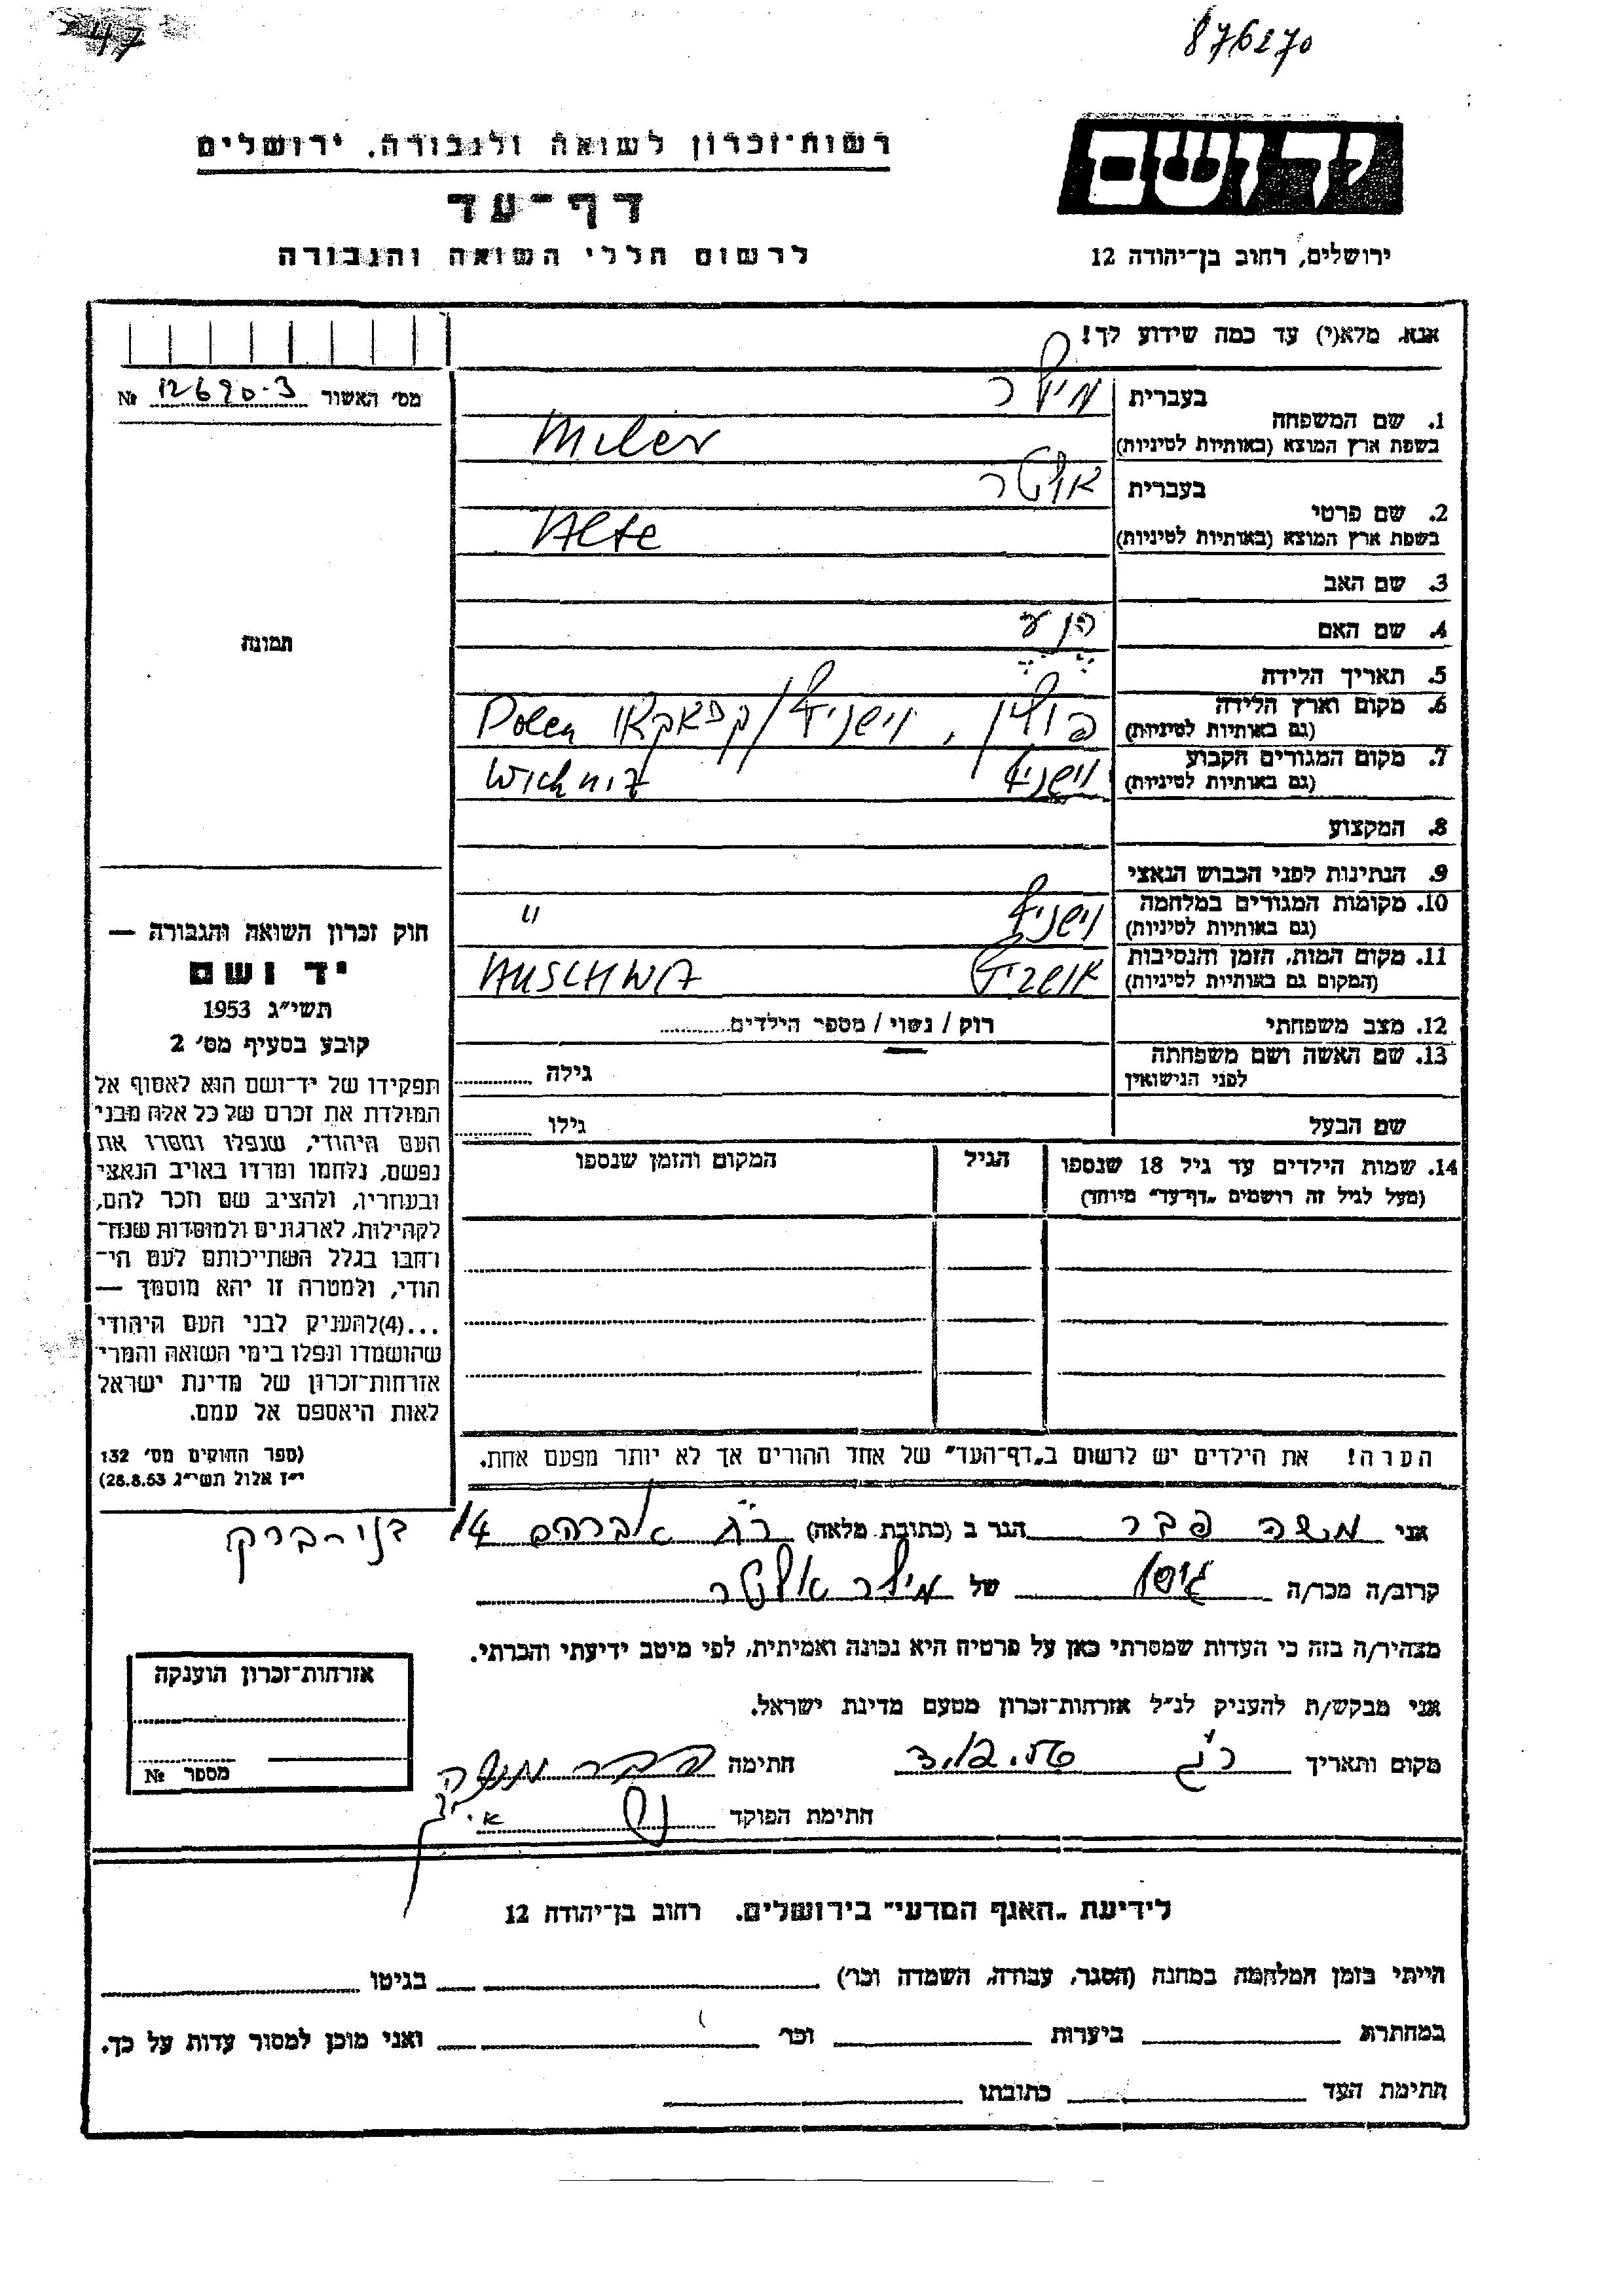 47
876270
יד ושם
רשות־זכרון לשואה ולגבורה, ירושלים
דף־עד
לרשום חללי השואה והגבורה
ירושלים, רחוב בן־יהודה 12
אנא, מלא(י) עד כמה שידוע לך!
מס׳ האשור 12690-3 №
תמונה
1. שם המשפחה
בעברית מילר
בשפת ארץ המוצא (באותיות לטיניות) Miler
2. שם פרטי
בעברית אלטר
בשפת ארץ המוצא (באותיות לטיניות) Alte
3. שם האב
4. שם האם
5. תאריך הלידה
6. מקום וארץ הלידה
(גם באותיות לטיניות) פולין, Polen
7. מקום המגורים הקבוע
(גם באותיות לטיניות)
8. המקצוע
9. הנתינות לפני הכבוש הנאצי
10. מקומות המגורים במלחמה
(גם באותיות לטיניות) "
11. מקום המות, הזמן והנסיבות
(המקום גם באותיות לטיניות) AUSCHWA
12. מצב משפחתי רוק / נשוי / מספר הילדים
13. שם האשה ושם משפחתה
לפני הנישואין גילה
שם הבעל גילו
14. שמות הילדים עד גיל 18 שנספו הגיל המקום והזמן שנספו
(מעל לגיל זה רושמים „דף־עד" מיוחד)
הערה! את הילדים יש לרשום ב„דף־העד" של אחד ההורים אך לא יותר מפעם אחת.
חוק זכרון השואה והגבורה —
יד ושם
תשי״ג 1953
קובע בסעיף מס׳ 2
תפקידו של יד־ושם הוא לאסוף אל
המולדת את זכרם של כל אלה מבני
העם היהודי, שנפלו ומסרו את
נפשם, נלחמו ומרדו באויב הנאצי
ובעוזריו, ולהציב שם וזכר להם,
לקהילות, לארגונים ולמוסדות שנח־
רבו בגלל השתייכותם לעם הי־
הודי, ולמטרה זו יהא מוסמך —
...(4)להעניק לבני העם היהודי
שהושמדו ונפלו בימי השואה והמרי
אזרחות־זכרון של מדינת ישראל
לאות היאספם אל עמם.
(ספר החוקים מס׳ 132
י״ז אלול תשי״ג 28.8.53)
אני משה פבר הגר ב (כתובת מלאה) אברהם 14 בני-ברק
קרוב/ה מכר/ה גיסו של מילר אלטר
מצהיר/ה בזה כי העדות שמסרתי כאן על פרטיה היא נכונה ואמיתית, לפי מיטב ידיעתי והכרתי.
אני מבקש/ת להעניק לנ״ל אזרחות־זכרון מטעם מדינת ישראל.
מקום ותאריך חתימה פבר משה
חתימת הפוקד
אזרחות־זכרון הוענקה
מספר №
לידיעת „האגף המדעי" בירושלים, רחוב בן־יהודה 12
הייתי בזמן המלחמה במחנה (הסגר, עבודה, השמדה וכר׳) בגיטו
במחתרת ביערות וכר׳ ואני מוכן למסור עדות על כך.
חתימת העד כתובתו